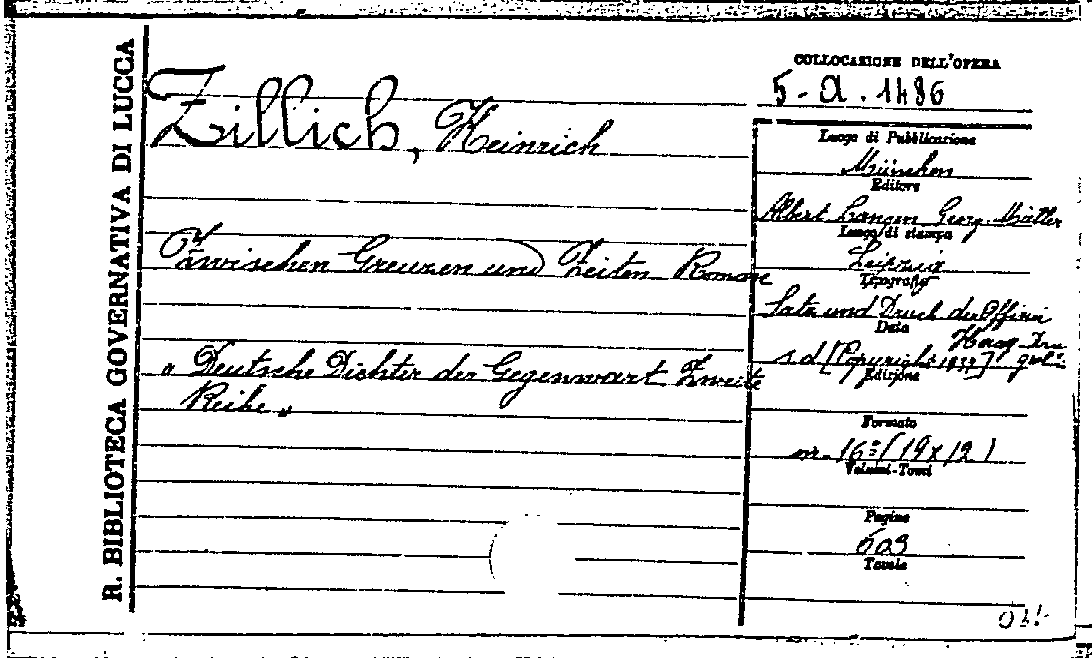 R. BIBLIOTECA GOVERNATIVA DI LUCCA
COLLOCAZIONE DELL'OPERA
5-a.1486
Zillich, Heinrich
Zwischen Grenzen und Zeiten Roman
" Deutsche Dichter der Gegenwart Zweite
Reihe "
Luogo di Pubblicazione
München
Editore
Albert Langen Georg Müller
Luogo di stampa
Leipzig
Tipografo
Satz und Druck der Offizin
Haag
Data
s. d [Copyright 1937]
Edizione
Formato
in-16º (19x12)
Volumi-Tomi
Pagine
603
Tavole